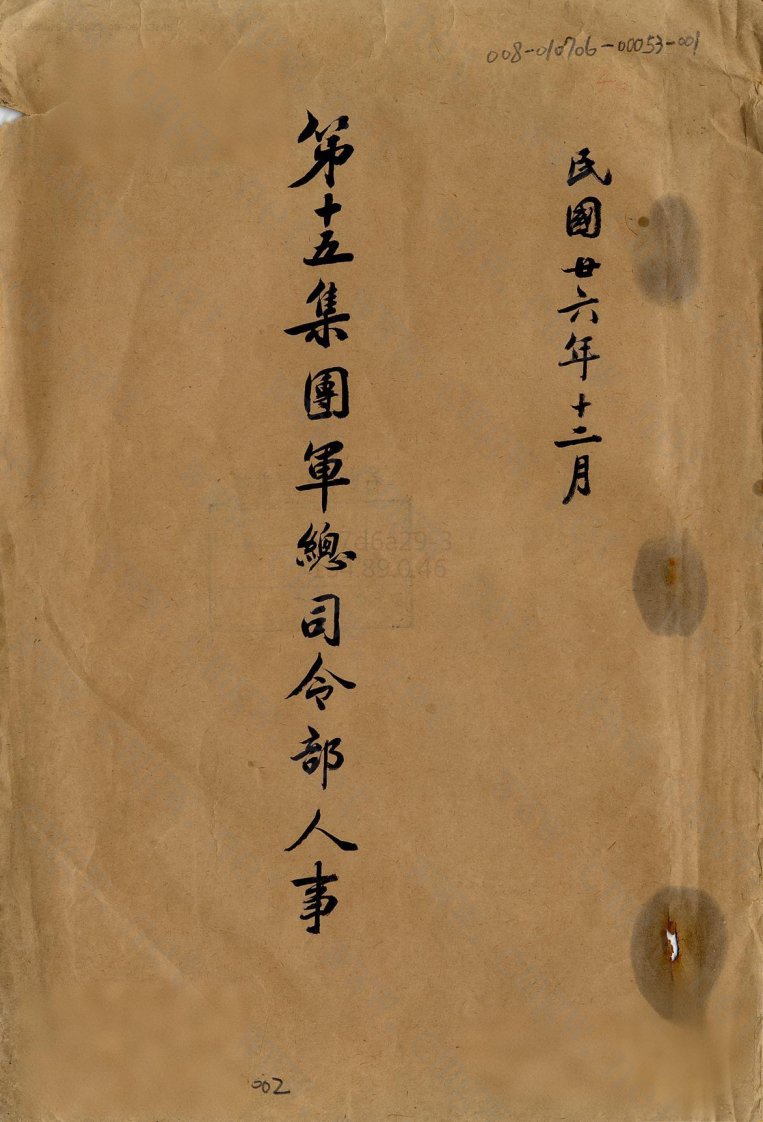 008-010706-00053-001
民國廿六年十二月
第十五集團軍總司令部人事
002